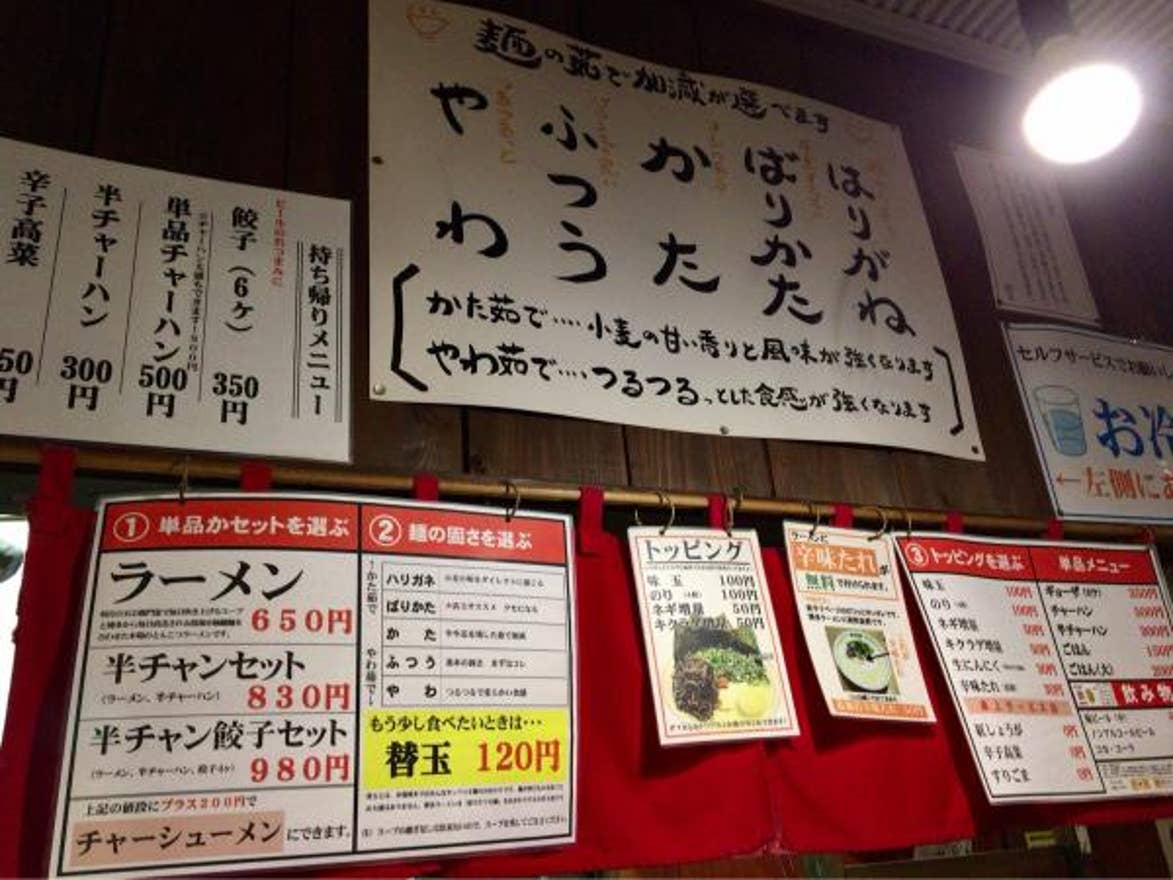 麺の茹で加減が選べます
はりがね
ばりかた
かた
ふつう
やわ
かた茹で‥‥小麦の甘い香りと風味が強くなります
やわ茹で‥‥つるつるっとした食感が強くなります
持ち帰りメニュー
ビールのおつまみに
餃子(6ケ) 350円
単品チャーハン 500円
半チャーハン 300円
辛子高菜 50円
セルフサービスでお願いし
お冷
←左側に
① 単品かセットを選ぶ
ラーメン
650円
半チャンセット
(ラーメン、半チャーハン)
830円
半チャン餃子セット
(ラーメン、半チャーハン、餃子4ケ)
980円
上記の値段にプラス200円で
チャーシューメンにできます。
② 麺の固さを選ぶ
かた茹で
ハリガネ
ばりかた
かた
ふつう
やわ
つるつるで柔らかい食感
やわ茹で
もう少し食べたいときは…
替玉 120円
トッピング
味玉 100円
のり 100円
ネギ増量 50円
キクラゲ増量 50円
ラーメンに
辛味たれが
無料で付けられます。
③ トッピングを選ぶ
味玉 100円
のり 100円
ネギ増量 50円
キクラゲ増量 50円
生にんにく
辛味たれ
紅しょうが 0円
辛子高菜 0円
すりごま 0円
単品メニュー
ギョーザ 350円
チャーハン
半チャーハン 300円
ごはん 150円
ごはん(大) 200
飲み物
ノンアルコールビール
コカ・コーラ